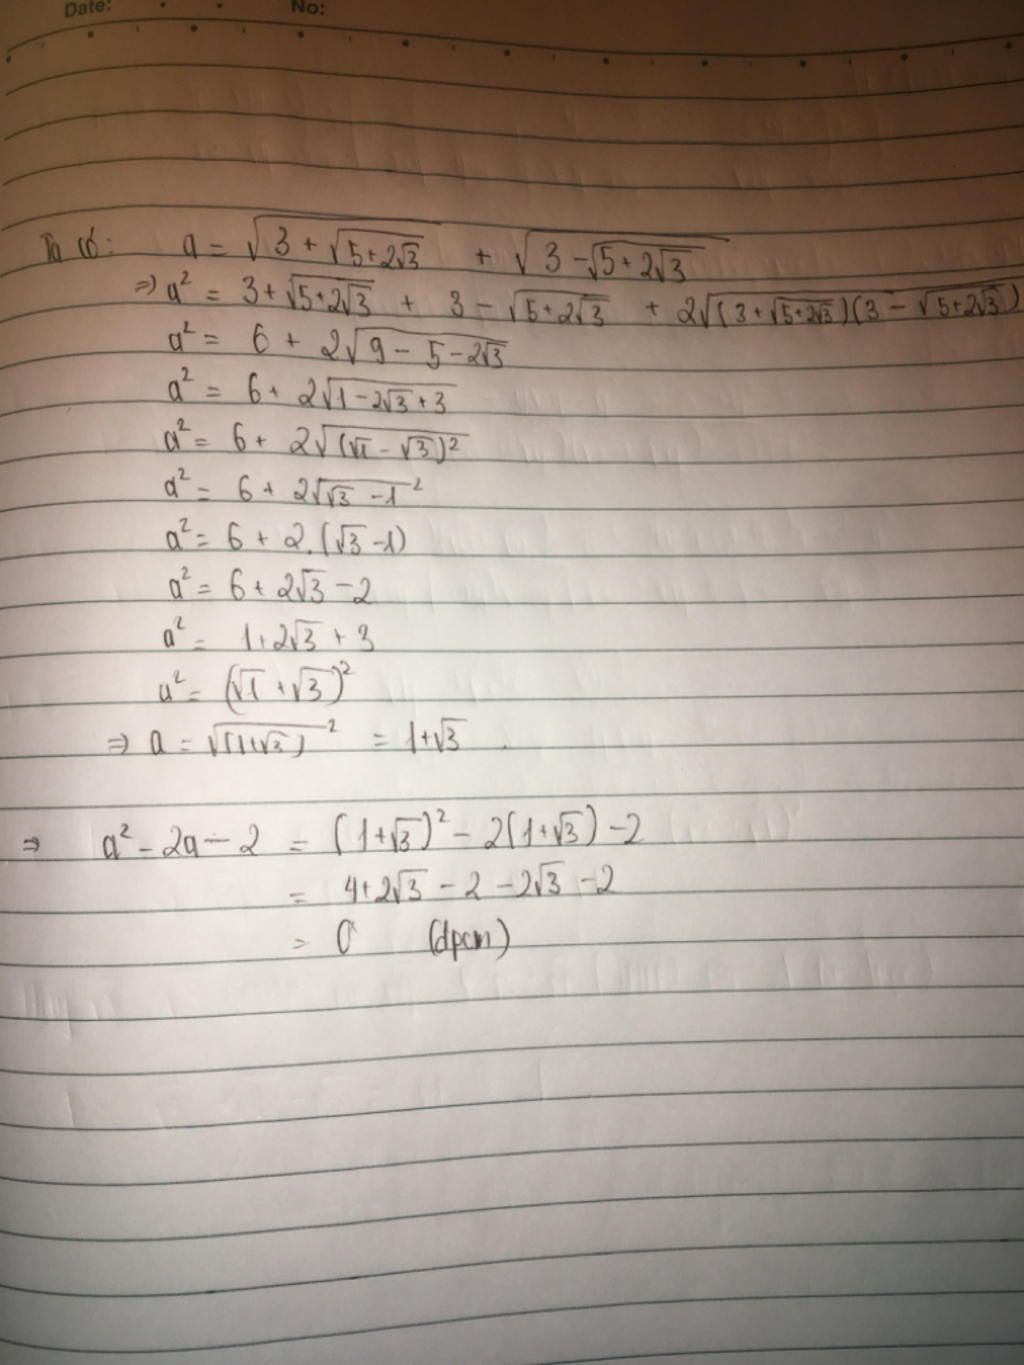 Date: No:
Ta có: a = √(3 + √(5+2√3)) + √(3 - √(5+2√3))
⇒ a² = 3 + √(5+2√3) + 3 - √(5+2√3) + 2√((3+√(5+2√3))(3-√(5+2√3)))
a² = 6 + 2√(9 - 5 - 2√3)
a² = 6 + 2√(1 - 2√3 + 3)
a² = 6 + 2√((√1 - √3)²)
a² = 6 + 2√(√3 - 1)²
a² = 6 + 2.(√3 - 1)
a² = 6 + 2√3 - 2
a² = 1 + 2√3 + 3
a² = (√1 + √3)²
⇒ a = √(1+√3)² = 1+√3
⇒ a² - 2a - 2 = (1+√3)² - 2(1+√3) - 2
= 4 + 2√3 - 2 - 2√3 - 2
= 0 (dpcm)